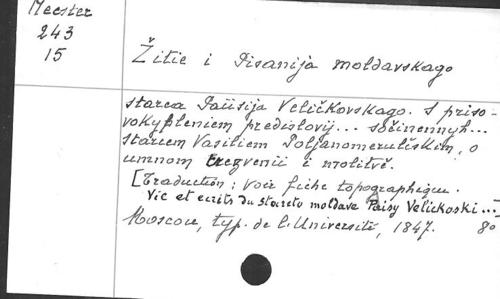 Meester
243
15
Žitie i Pisanija moldavskago
starca Paiisija Veličkovskago. S priso-
vokupleniem predislovij... sočinennyh...
starcem Vasiliem Poljanomerulskim, o
umnom trezvenii i molitvě.
[Traduction: voir fiche topographique.
Vie et ecrits du starets moldave Paisy Velickoski...]
Moscou, typ. de l'Université, 1847. 8º